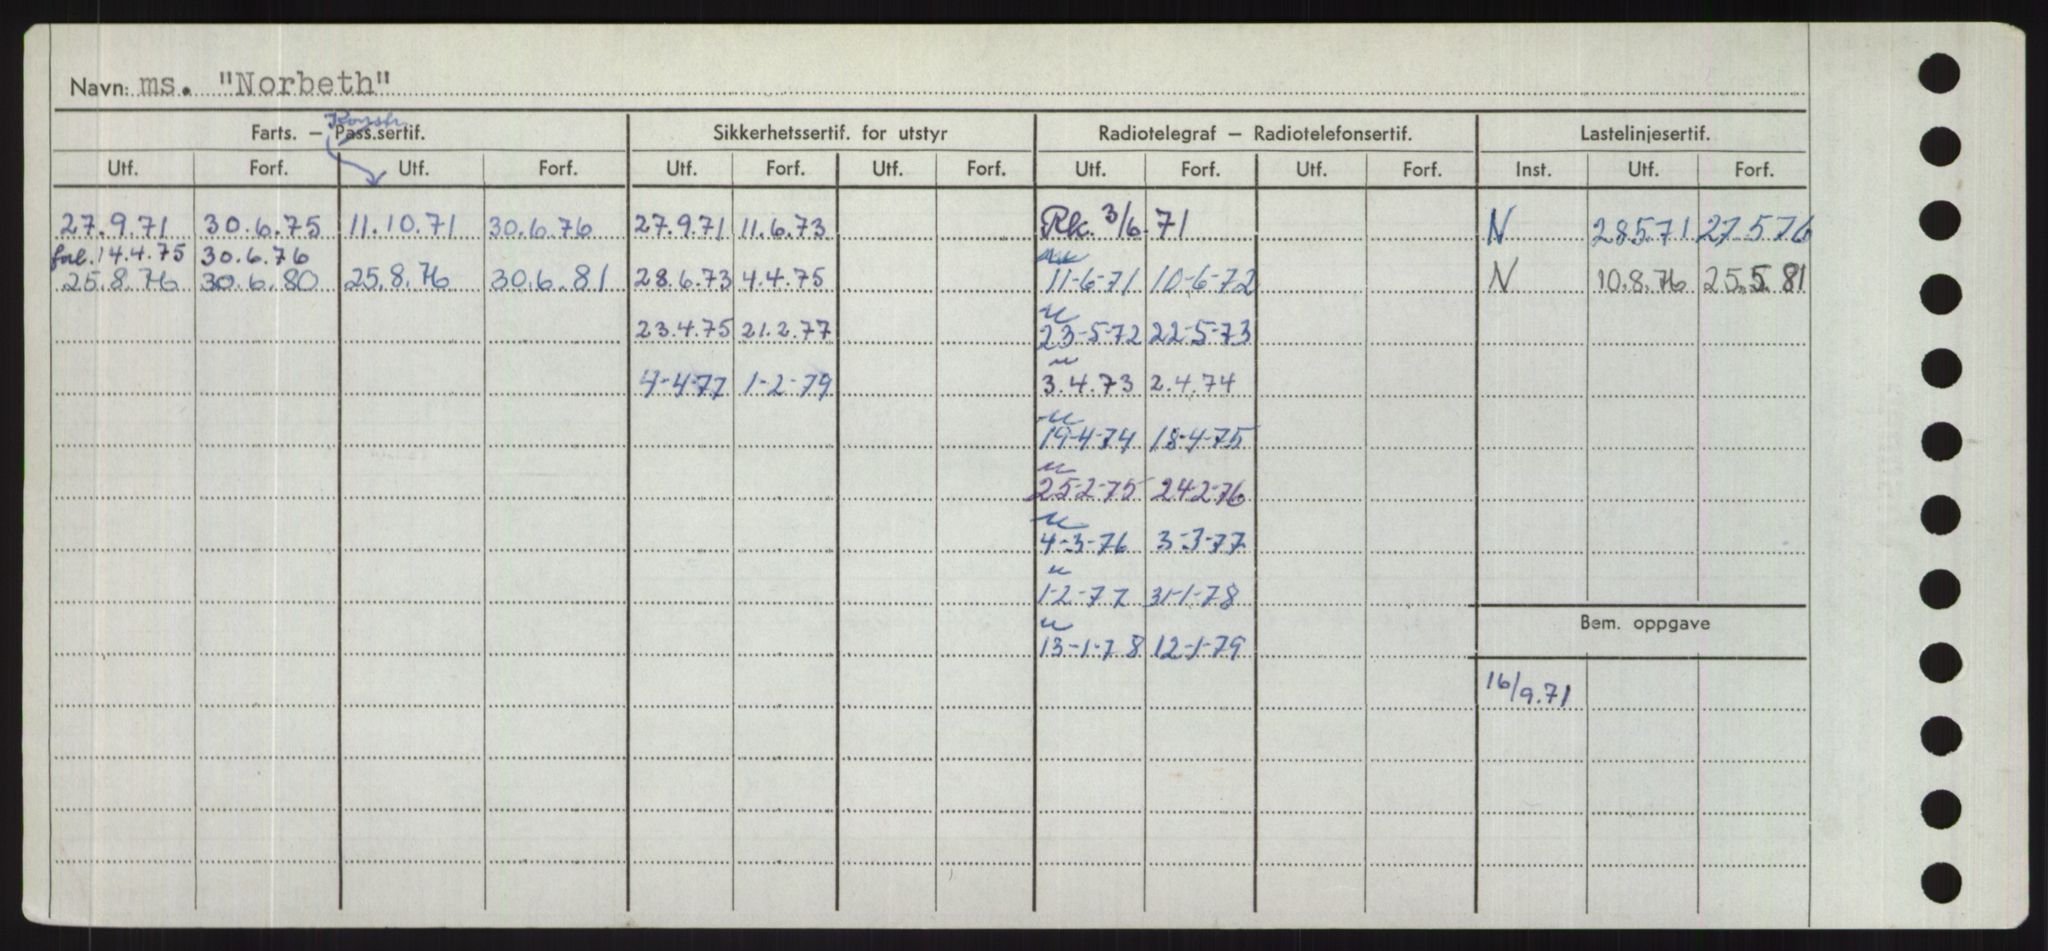 Navn: ms. "Norbeth"
Konstr.
Farts. – Pass.sertif. Sikkerhetssertif. for utstyr Radiotelegraf – Radiotelefonsertif. Lastelinjesertif.
Utf. Forf. Utf. Forf. Utf. Forf. Utf. Forf. Utf. Forf. Utf. Forf. Inst. Utf. Forf.
27.9.71 30.6.75 11.10.71 30.6.76 27.9.71 11.6.73 Rk. 3/6.71 N 28.5.71 27.5.76
forl. 14.4.75 30.6.76
25.8.76 30.6.80 25.8.76 30.6.81 28.6.73 4.4.75 11-6-71 10-6-72 N 10.8.76 25.5.81
23.4.75 21.2.77 23-5-72 22-5-73
4-4-77 1-2-79 3.4.73 2.4.74
19-4-74 18-4-75
25-2-75 24-2-76
4-3-76 3-3-77
1-2-77 31-1-78
Bem. oppgave
13-1-78 12-1-79
16/9.71